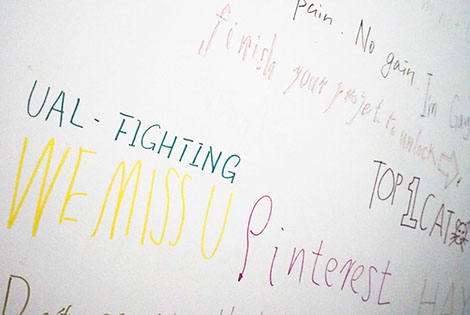 pain. No gain.
finish your project to unlock
I'm
UAL - FIGHTING
WE MISS U
TOP 1 CAT
Pinterest
HA